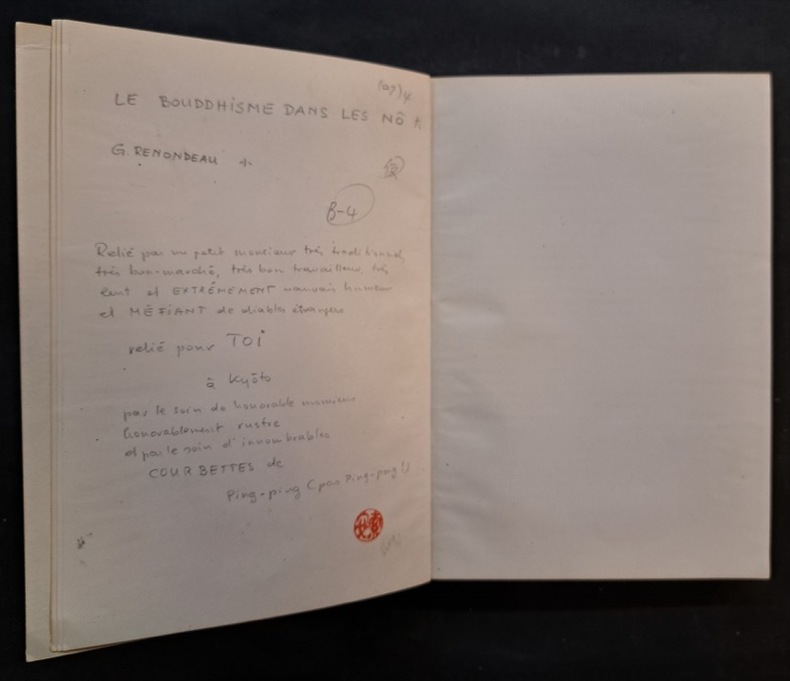 (09) 4
LE BOUDDHISME DANS LES NÔ
G. RENONDEAU
B-4
Relié par un petit monsieur très traditionnel,
très bon-marché, très bon travailleur, très
lent et EXTRÊMEMENT mauvais humeur
et MÉFIANT de diables étrangers
relié pour TOI
à Kyōto
par le soin de honorable monsieur
honorablement rustre
et par le soin d'innombrables
COURBETTES de
Ping-ping (pas Ping-pong!)